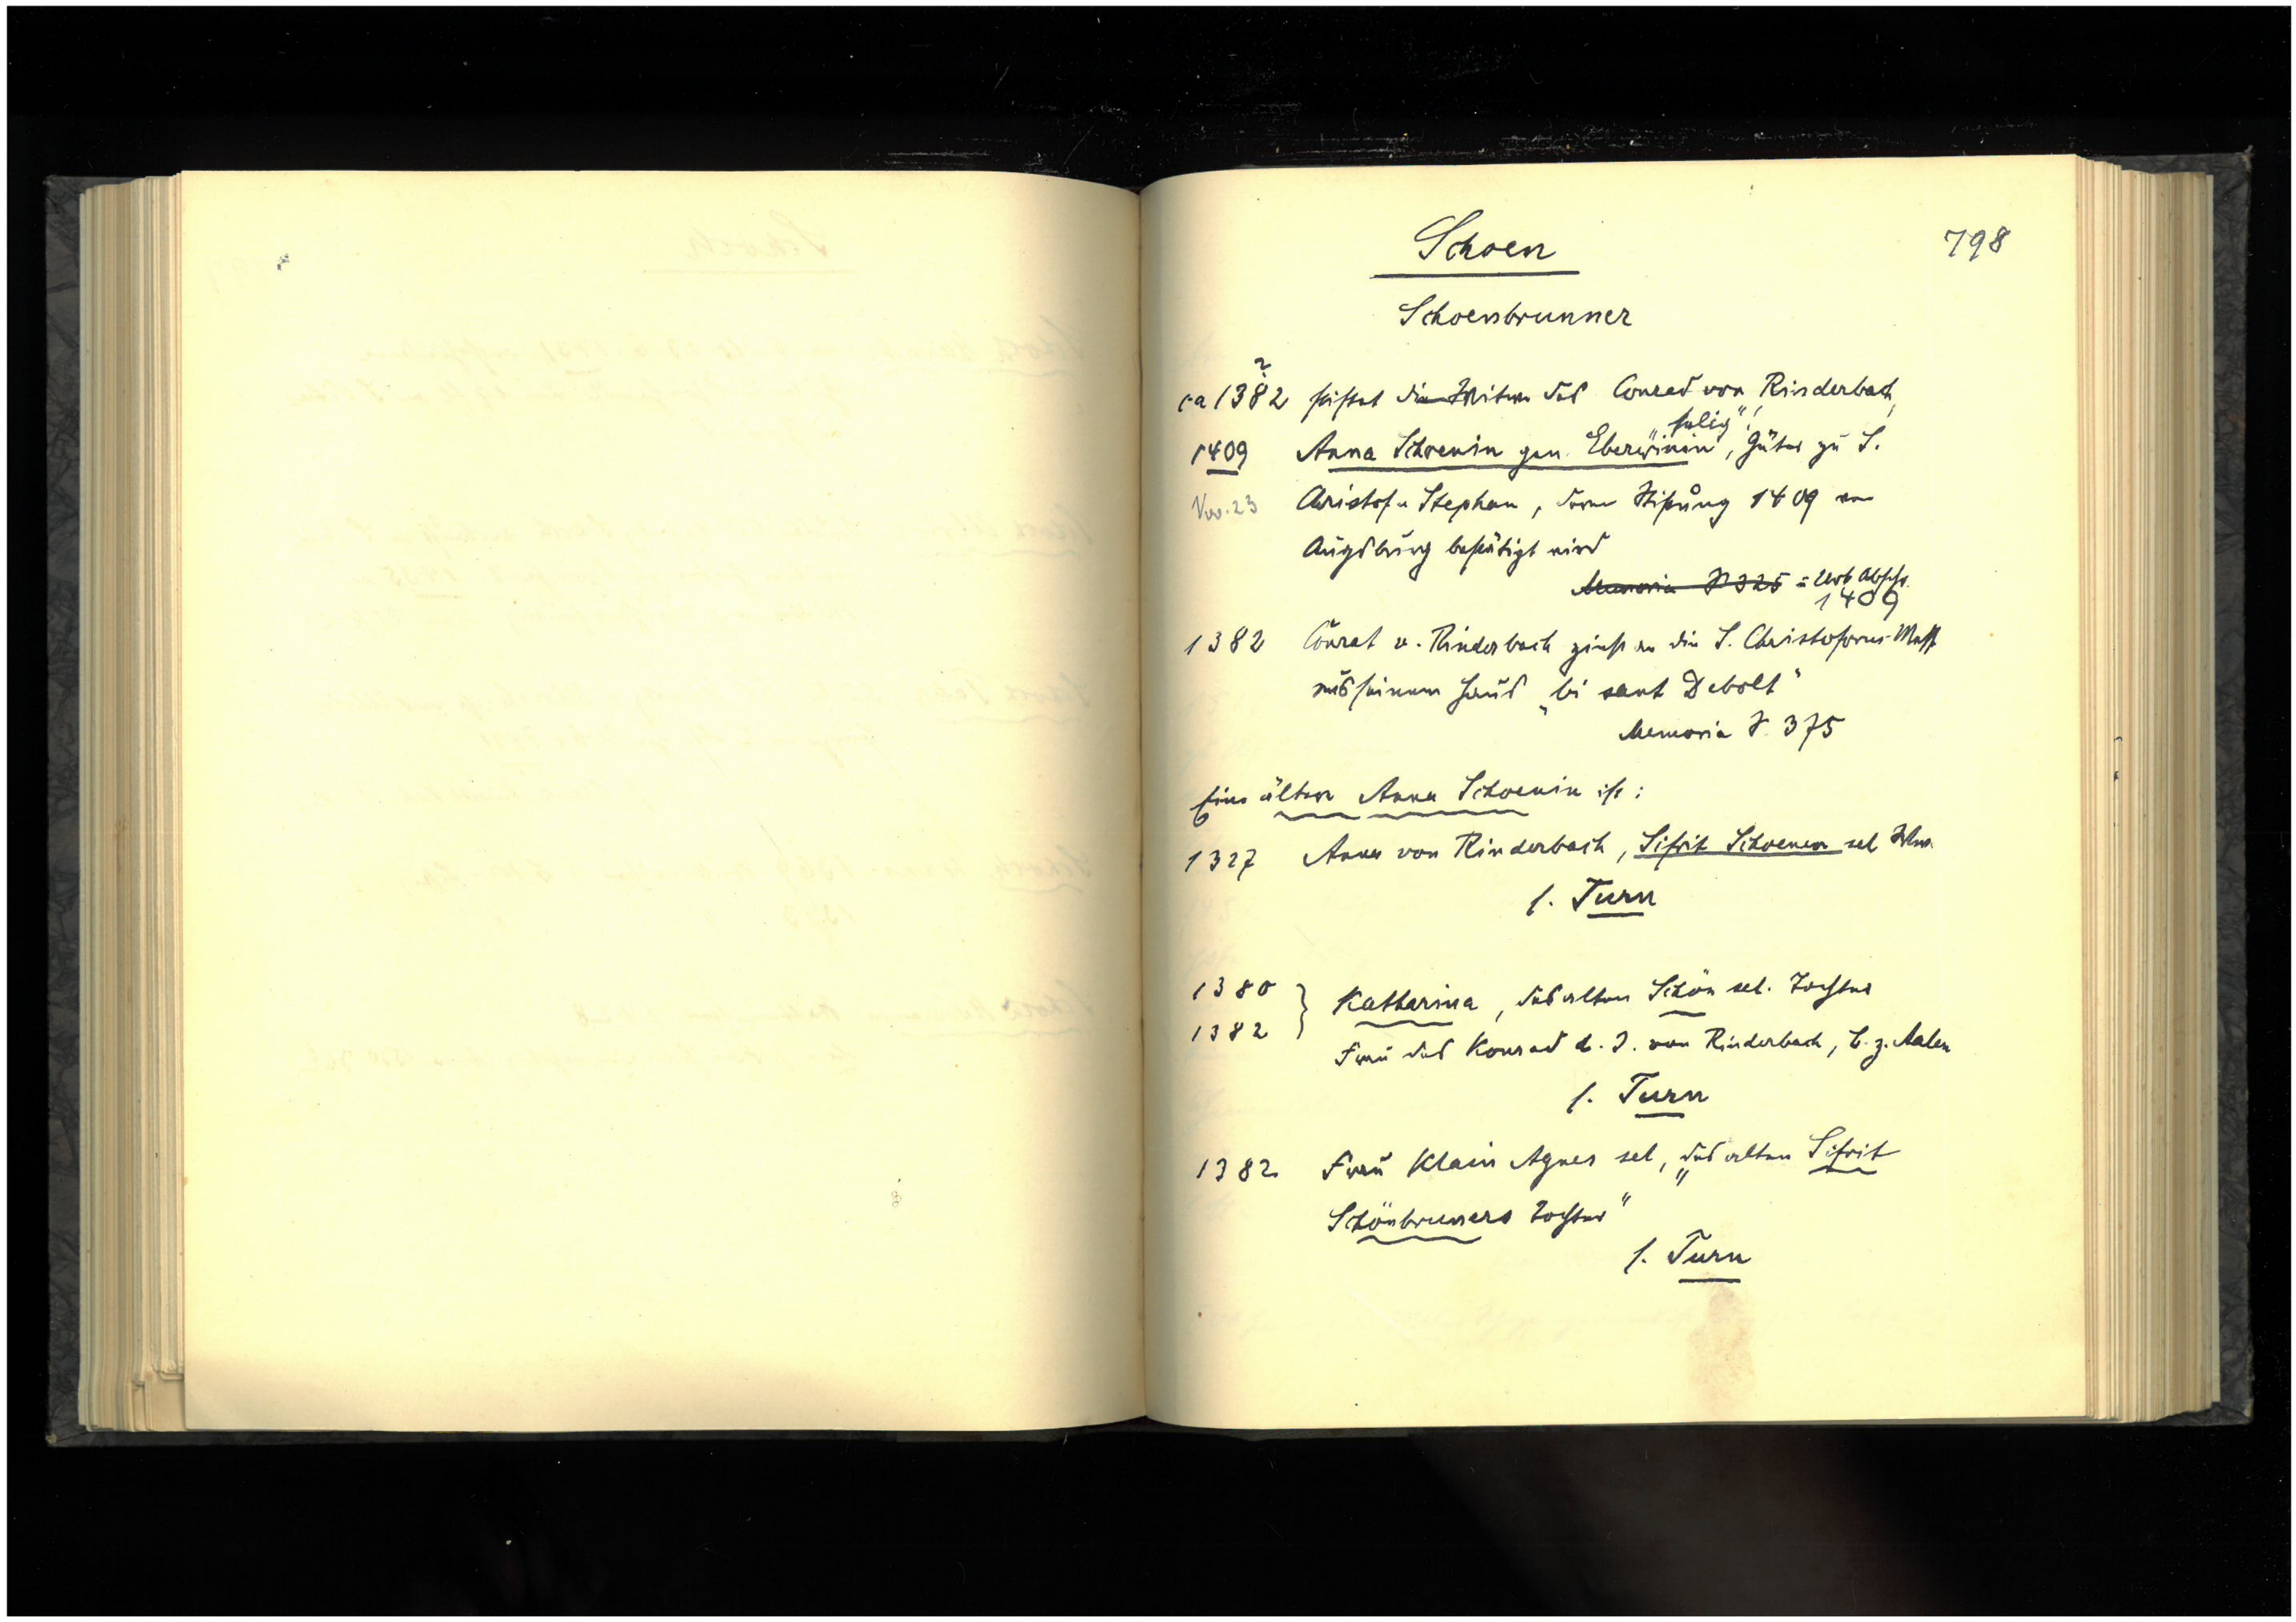 Schoen
798
Schoenbrunner
?
ca 1382 stiftet die Witwe des Conrad von Rinderbach,
"selig"!
1409 Anna Schoenin gen. Eberwinin, Güter zu S.
Nov. 23 Christof u Stephan, deren Stiftung 1409 von
Augsburg bestätigt wird
Memoria S 325 = Urk Abschr.
1409
1382 Conrat v. Rinderbach zinst an die S. Christoforus-Mess
aus seinem Haus "bi sant Debolt"
Memoria S. 375
Eine ältere Anna Schoenin ist:
1327 Anna von Rinderbach, Sifrit Schoenen sel Wwe.
s. Turn
1380
1382 } Katharina, des alten Schön sel. Tochter
Frau des Konrad d. J. von Rinderbach, B. z. Aalen
s. Turn
1382 Frau Klain Agnes sel, "des alten Sifrit
Schönbruners Tochter"
s. Turn